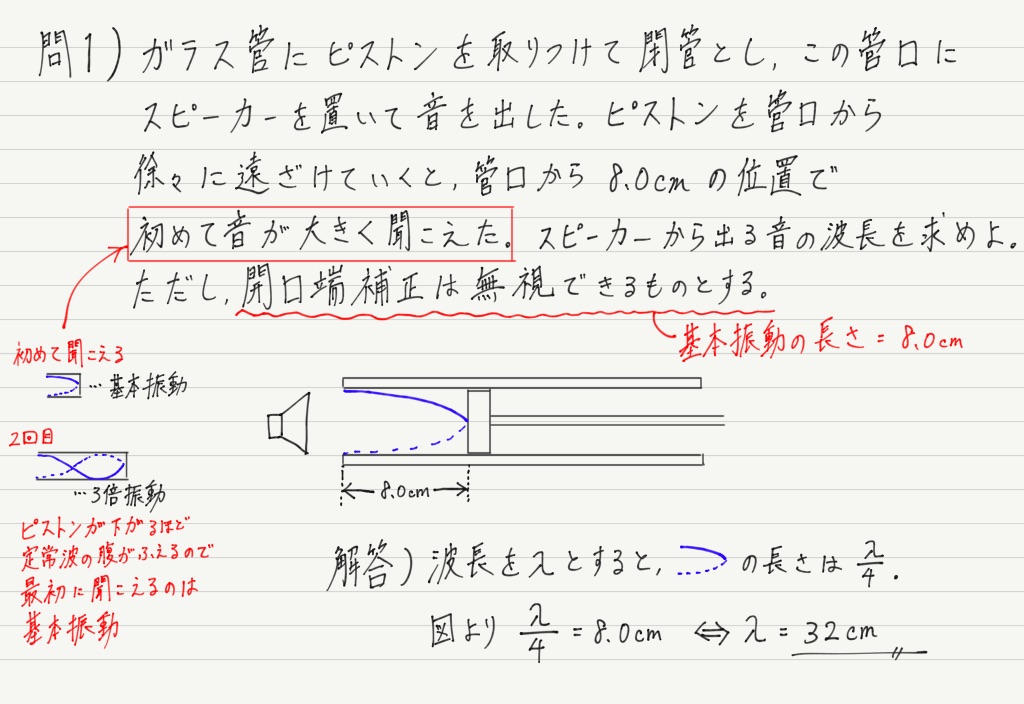 問1) ガラス管にピストンを取りつけて閉管とし、この管口に
スピーカーを置いて音を出した。ピストンを管口から
徐々に遠ざけていくと、管口から 8.0cm の位置で
初めて音が大きく聞こえた。スピーカーから出る音の波長を求めよ。
ただし、開口端補正は無視できるものとする。
基本振動の長さ = 8.0cm
初めて聞こえる
…基本振動
2回目
…3倍振動
ピストンが下がるほど
定常波の腹がふえるので
最初に聞こえるのは
基本振動
8.0cm
解答) 波長をλとすると、 の長さは λ/4 .
図より λ/4 = 8.0cm ⇔ λ = 32cm